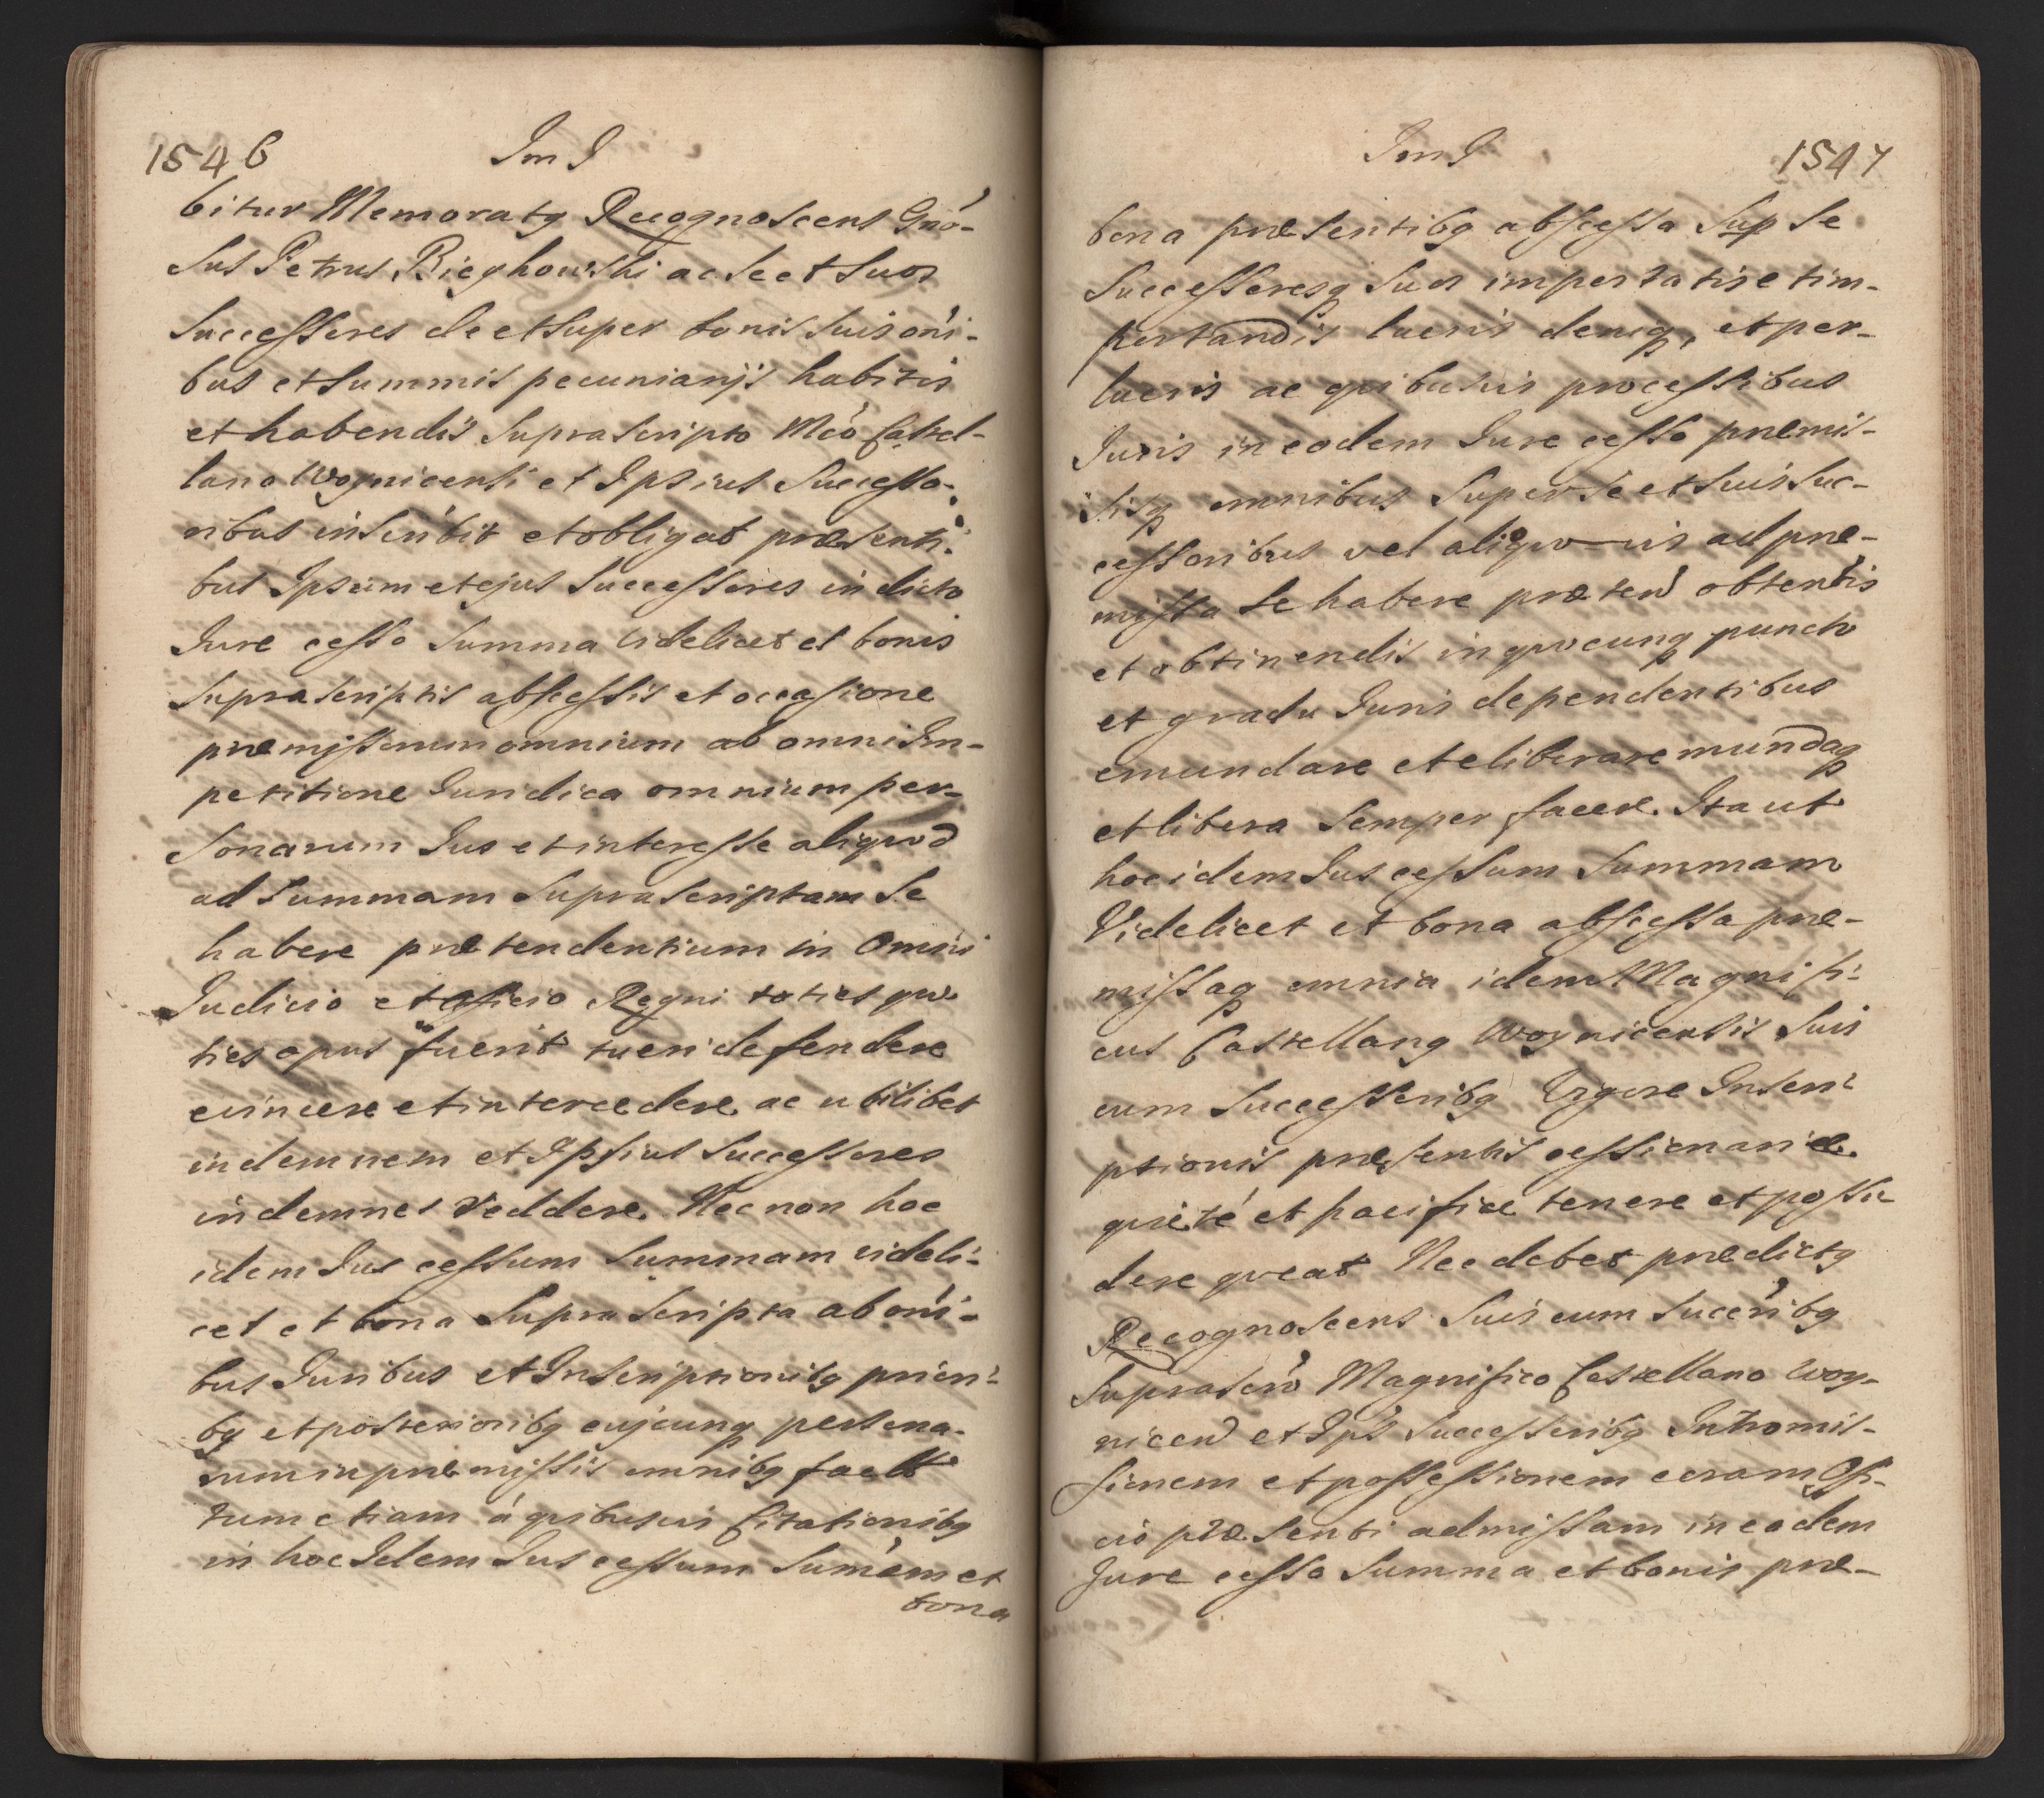 1546 Im J
bitur Memoratq Recognoscens Gnó-
sus Petrus Bieghowski ac se et suos
Successores de et super bonis suis oñi-
bus et summis pecuniarijs habitis
et habendis supra scripto Mćo Castel-
lano Woynicensi et Ipsius Successo-
ribus inscribit et obligat præsenti-
bus Ipsum et ejus Successores in dicto
Jure cesso Summa videlicet et bonis
suprascriptis abscessis et occasione
præmissorum omnium ab omni Im-
petitione Juridica omnium per-
sonarum Jus et interesse aliquod
ad Summam Suprascriptam se
habere prætendentium in Omni
Judicio et officio Regni toties quo
ties opus fuerit tueri defendere
evincere et intercedere ac ubilibet
indemnem et Ipsius Successores
indemnes reddere. Nec non hoc
idem Jus cessum Summam videli-
cet et bona Suprascripta ab oñi-
bus Juribus et Inscriptionibq priori-
bq et posterioribq cujcunq persona-
rum in præmissis omnibq fact
tum etiam á quibusvis Citationibq
in hoc Idem Jus cessum Sumam et
bona
Im J 1547
bona præsentibq abscessa Sup se
Successoresq suos impertatis et im-
pertandis lucris denıq, et per-
lucris ac quibusvis processibus
Juris in eodem Jure cesso præmis-
sisq omnibus super se et suis Suc-
cessoribus vel aliquo-vis ad præ-
missa se habere prætend obtentis
et obtinendis in quocunq puncto
et gradu Juris dependentibus
emundare et eliberare mundaq
et libera semper facere. Ita ut
hoc idem Jus cessum Summam
Videlicet et bona abscessa præ-
missaq omnia idem Magnifi-
cus Castellanq Woynicensis suis
cum Successoribq Vigore Inscri-
ptionis præsentis cessionariæ
quieté et pacifice tenere et possi
dere queat Nec debet prædictq
Recognoscens suis cum succribq
suprascro Magnifico Castellano Woy-
nicen et Ips Successoribq Intromis-
sionem et possessionem coram Offi-
cio præsenti admissam in eodem
Jure cesso Summa et bonis præ-